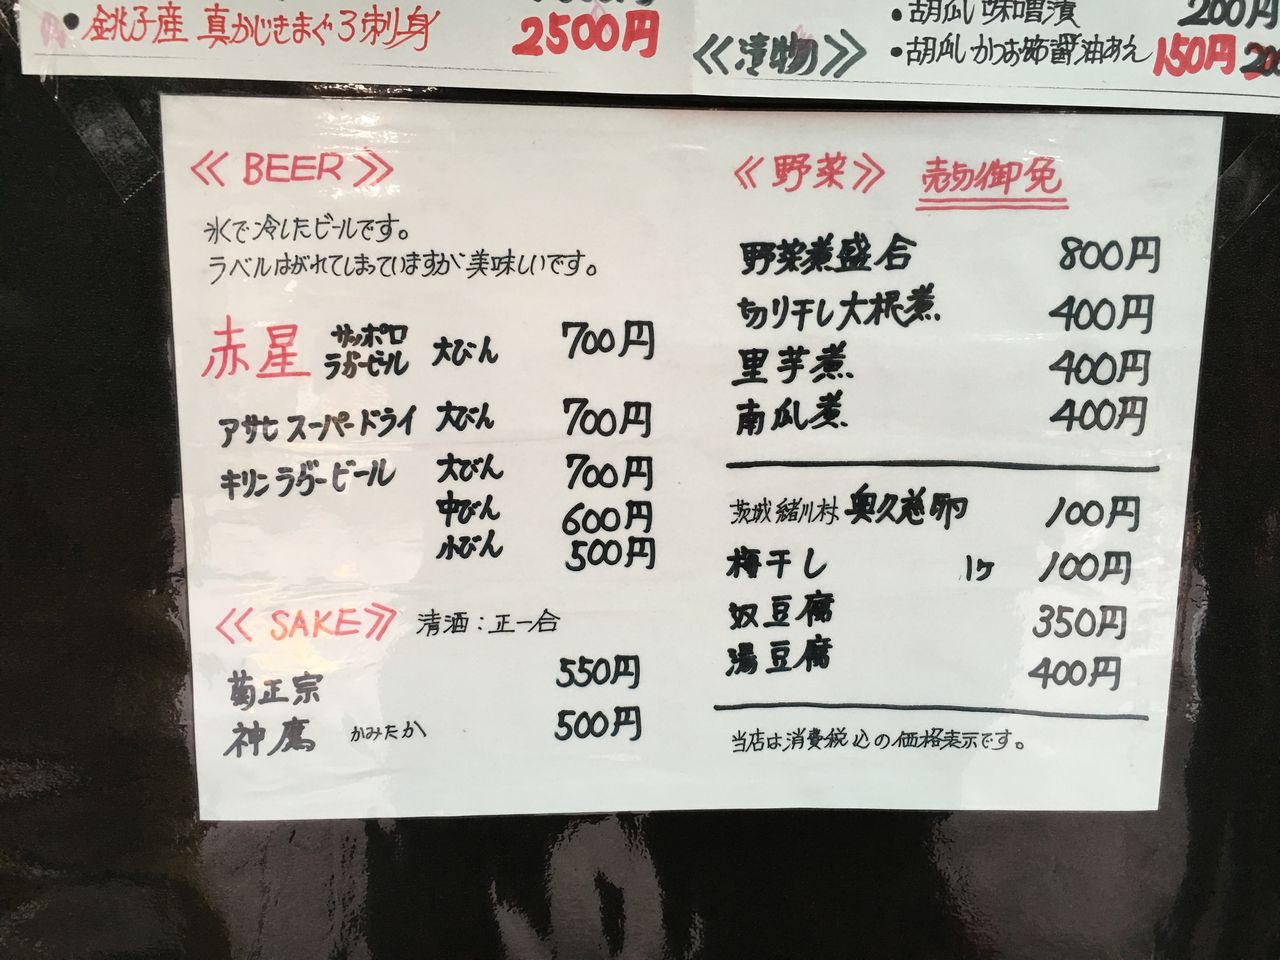 ・銚子産 真かじきまぐろ刺身 2500円
≪漬物≫
・胡瓜味噌漬 200円
・胡瓜かつお節醤油あえ 150円
≪BEER≫
氷で冷したビールです。
ラベルはがれてしまっていますが美味しいです。
赤星 サッポロラガービール 大びん 700円
アサヒスーパードライ 大びん 700円
キリンラガービール 大びん 700円
中びん 600円
小びん 500円
≪SAKE≫ 清酒:正一合
菊正宗 550円
神鷹 かみたか 500円
≪野菜≫ 売切御免
野菜煮盛合 800円
切り干し大根煮 400円
里芋煮 400円
南瓜煮 400円
茨城 緒川村 奥久慈卵 100円
梅干し 1ヶ 100円
奴豆腐 350円
湯豆腐 400円
当店は消費税込の価格表示です。